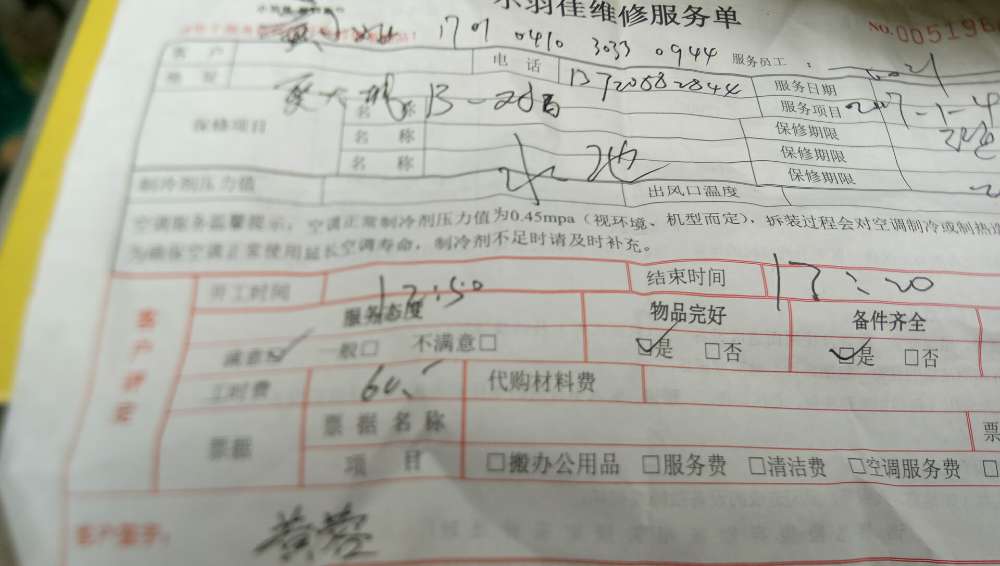 羽佳维修服务单
NO.005196
1701 0410 3033 0944 服务员工：
客 户 电 话 13720882844 服务日期
地 址 B-28 服务项目 2017-1-4
保修项目 名 称 保修期限
名 称 保修期限
名 称 保修期限
制冷剂压力值 出风口温度
空调服务温馨提示：空调正常制冷剂压力值为0.45mpa（视环境、机型而定），拆装过程会对空调制冷或制热造
为确保空调正常使用延长空调寿命，制冷剂不足时请及时补充。
客户评定
开工时间 12:50 结束时间 17:20
服务态度 物品完好 备件齐全
满意☑ 一般□ 不满意□ ☑是 □否 ☑是 □否
工时费 60 代购材料费
票据 票据名称 票
项 目 □搬办公用品 □服务费 □清洁费 □空调服务费 □
客户签字： 黄蓉